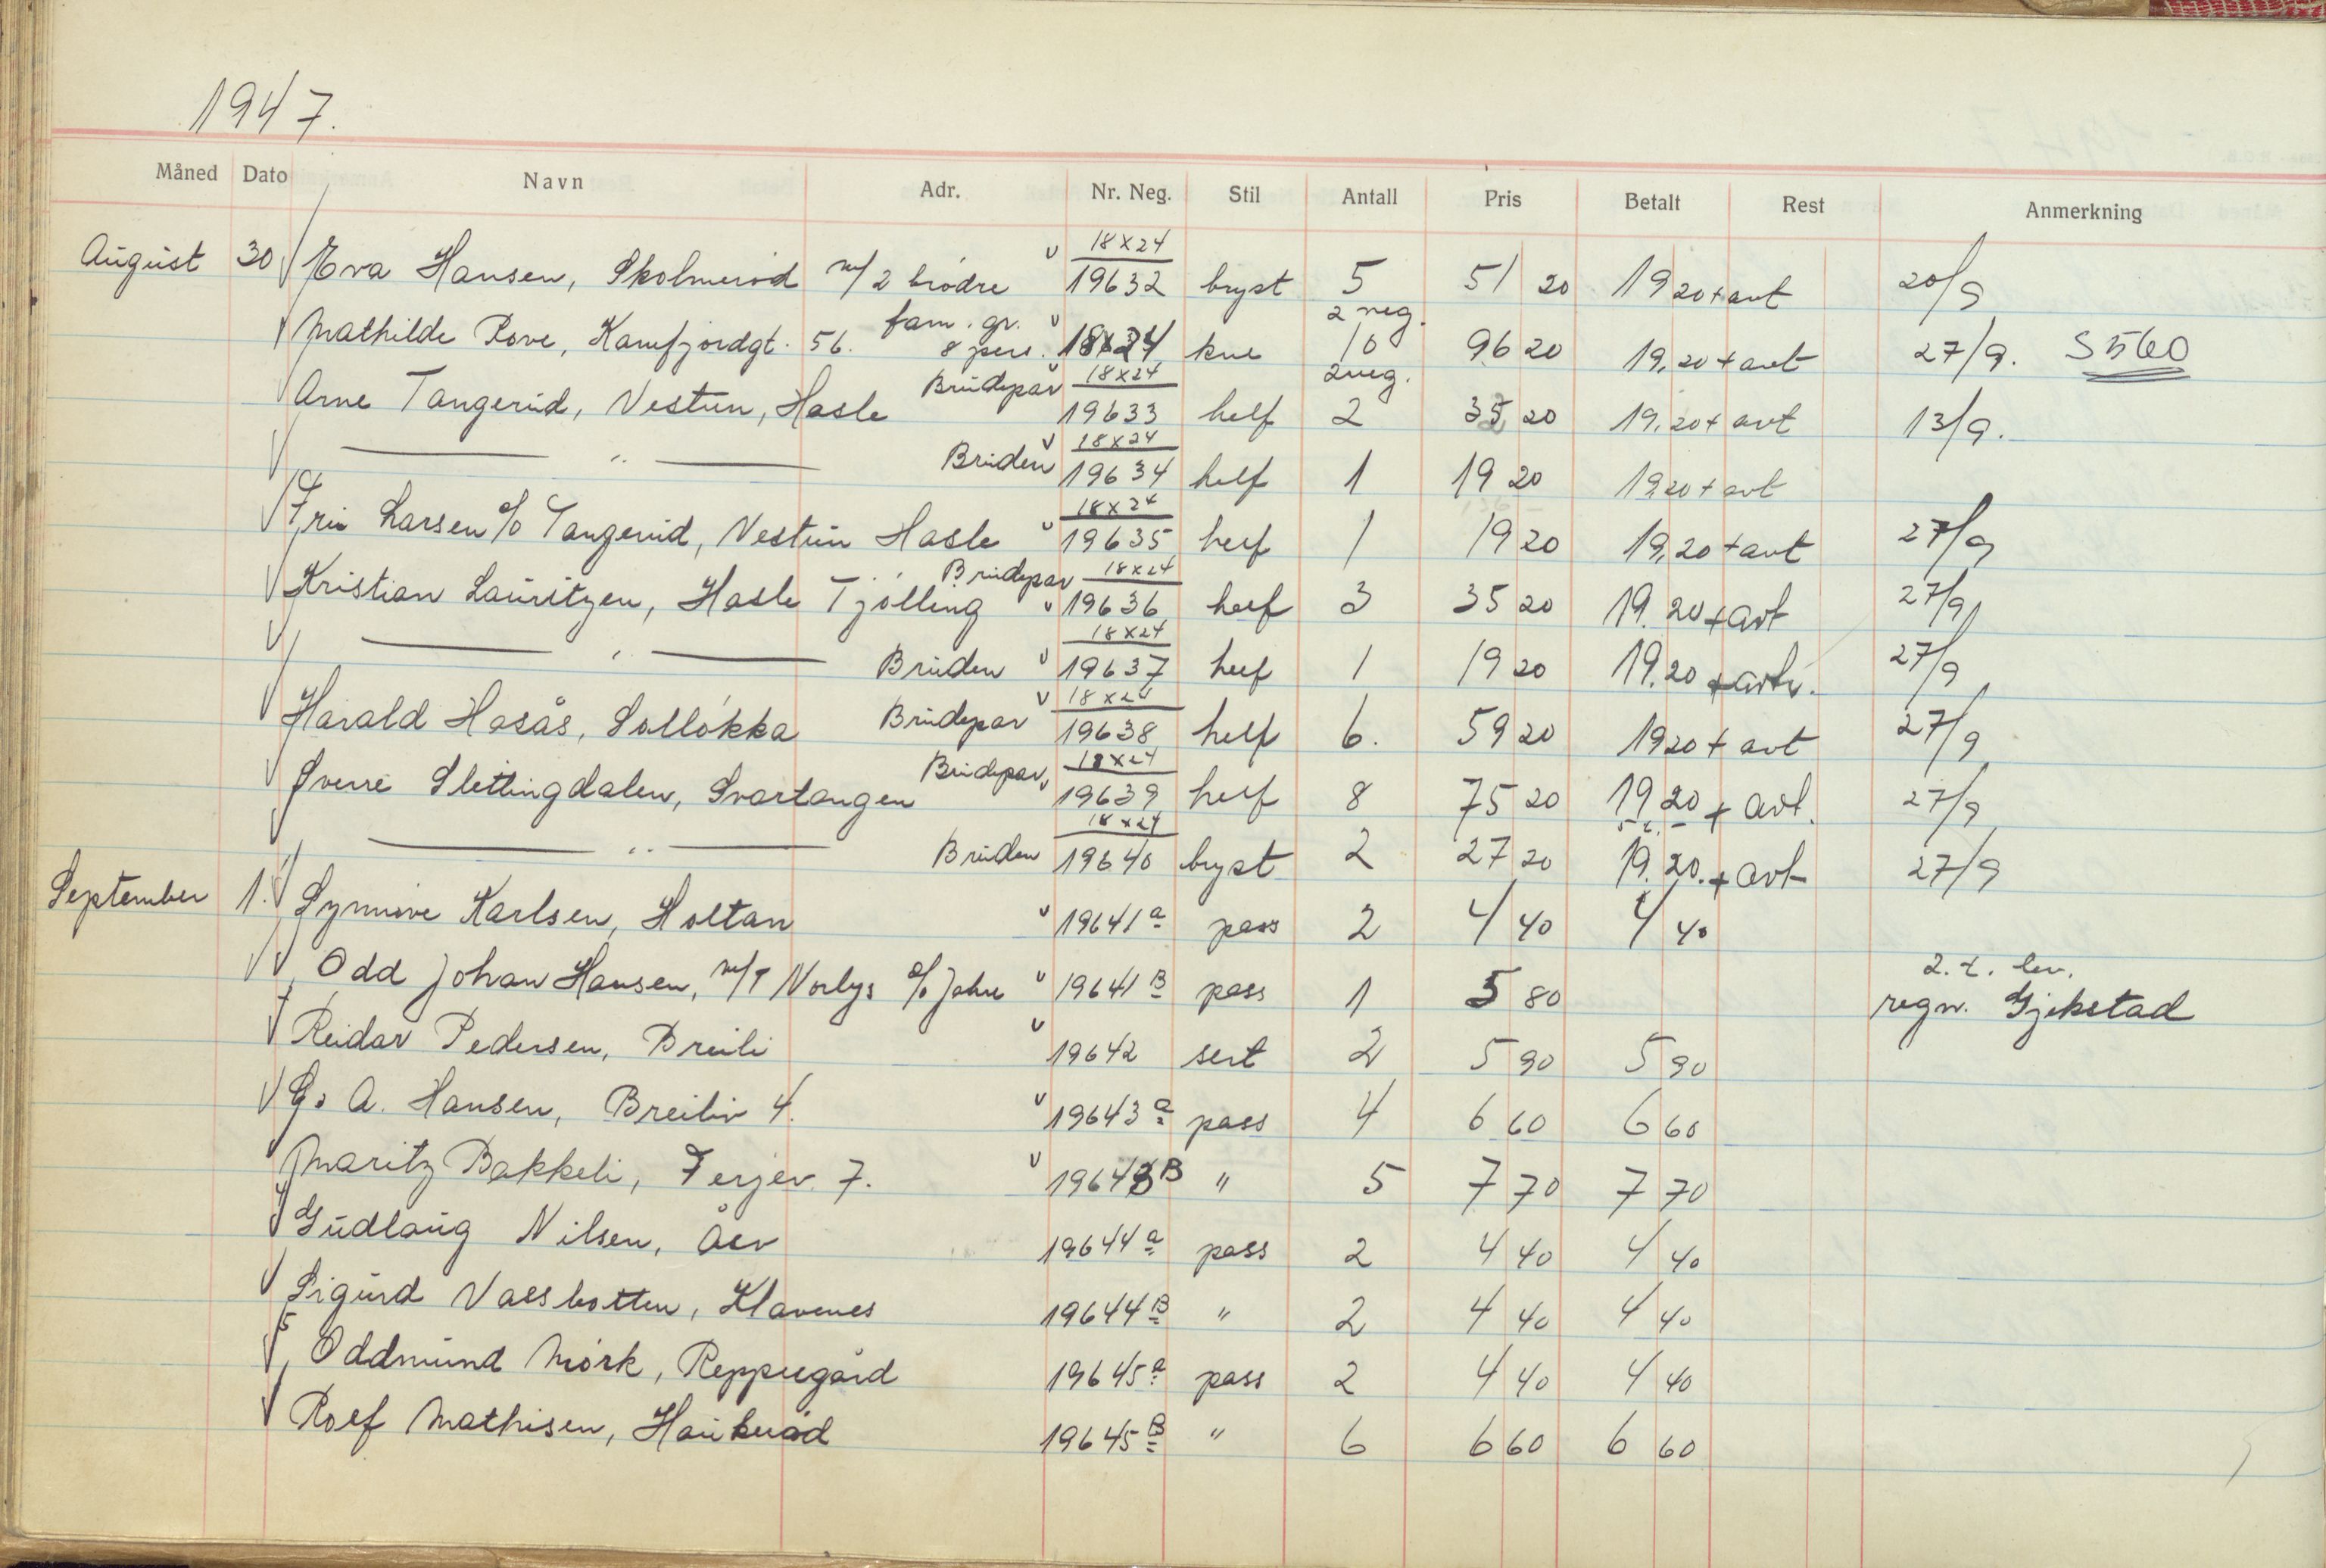 1947.
Måned Dato Navn Adr. Nr. Neg. Stil Antall Pris Betalt Rest Anmerkning
August 30 Eva Hansen, Skolmeröd m/2 brödre 18x24 19632 bryst 5 2 neg. 51 20 19 20 + avt 20/9
Mathilde Rove, Kamfjordgt. 56. fam. gr. 8 pers. 18x24 kne 10 2 neg. 96 20 19,20 + avt 27/9. S 560
Arne Tangerud, Vestun, Hasle Brudepar 18x24 19633 helf 2 35 20 19,20 + avt 13/9.
— " — Bruden 18x24 19634 helf 1 19 20 19 20 + avt
Fru Larsen c/o Tangerud, Vestun Hasle 18x24 19635 helf 1 19 20 19,20 + avt 27/9
Kristian Lauritzen, Hasle Tjölling Brudepar 18x24 19636 helf 3 35 20 19.20 + avt 27/9
— " — Bruden 18x24 19637 helf 1 19 20 19.20 + avt. 27/9
Harald Hasås, Sollökka Brudepar 18x24 19638 helf 6. 59 20 19 20 + avt 27/9
Sverre Slettingdalen, Svartangen Brudepar 18x24 19639 helf 8 75 20 19 20 + avt. 27/9
— " — Bruden 18x24 19640 bryst 2 27 20 19.20. + avt 27/9
September 1. Synnöve Karlsen, Holtan 19641 a pass 2 4 40 4 40
Odd Johan Hansen, m/T Norlys c/o Jahre 19641 B pass 1 5 80 2. t. lev. regn. Gjekstad
Reidar Pedersen, Breili 19642 sert 2 5 90 5 90
G. A. Hansen, Breiliv 4. 19643 a pass 4 6 60 6 60
Maritz Bakkeli, Ferjev. 7. 19643 B " 5 7 70 7 70
Gudlaug Nilsen, 19644 a pass 2 4 40 4 40
Sigurd Valsbotten, Klavenes 19644 B " 2 4 40 4 40
Oddmund Mörk, Reppegård 19645 a pass 2 4 40 4 40
Rolf Mathisen, Haukeröd 19645 B " 6 6 60 6 60